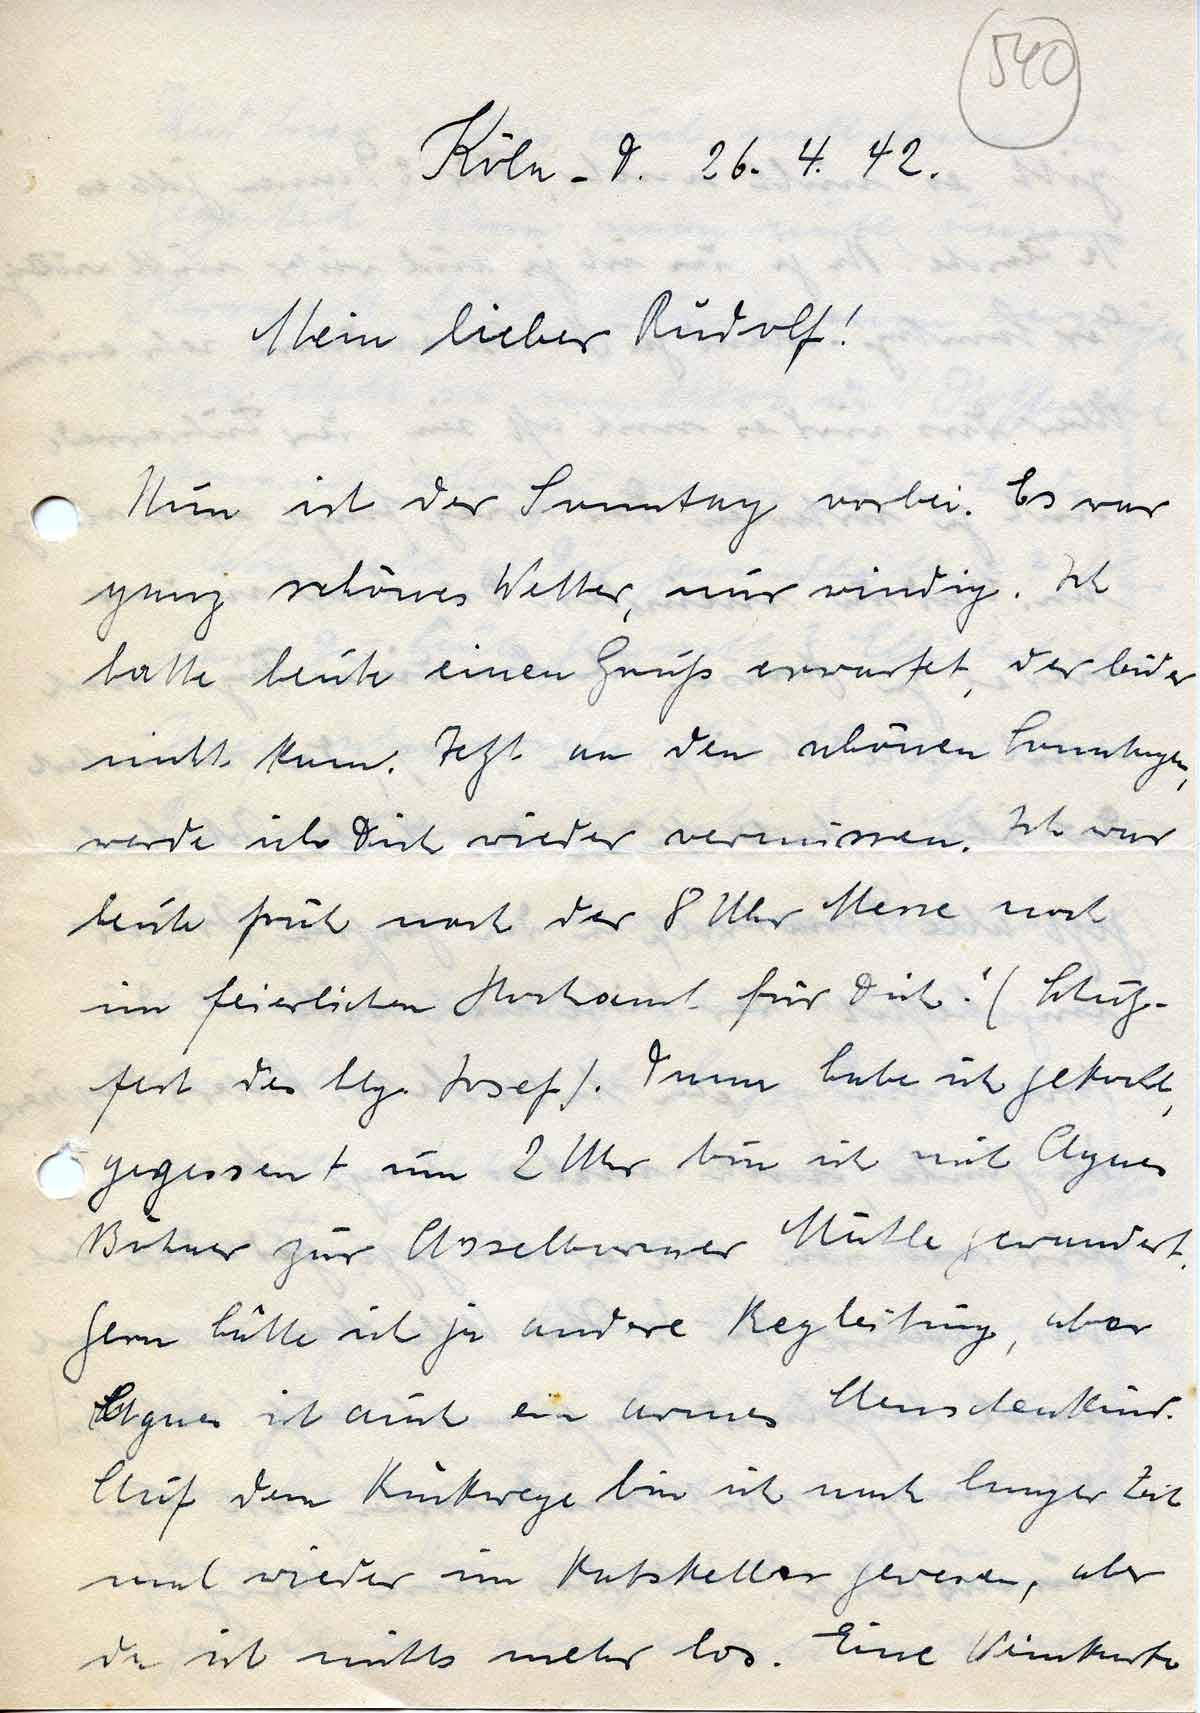 540
Köln-D. 26. 4. 42.
Mein lieber Rudolf!
Nun ist der Sonntag vorbei. Es war
ganz schönes Wetter, nur windig. Ich
hatte heute einen Gruß erwartet, der leider
nicht kam. Jetzt an den schönen Sonntagen,
werde ich Dich wieder vermissen. Ich war
heute früh nach der 8 Uhr Messe noch
im feierlichen Hochamt für Dich! (Schutz-
fest des hlg. Josef). Dann habe ich gekocht,
gegessen + um 2 Uhr bin ich mit Agnes
zur Asselborner Mühle gewandert.
Gern hätte ich ja andere Begleitung, aber
Agnes ist auch ein armes Menschenkind.
Auf dem Rückwege bin ich nach langer Zeit
mal wieder im Ratskeller gewesen, aber
da ist nichts mehr los. Eine Weinkarte